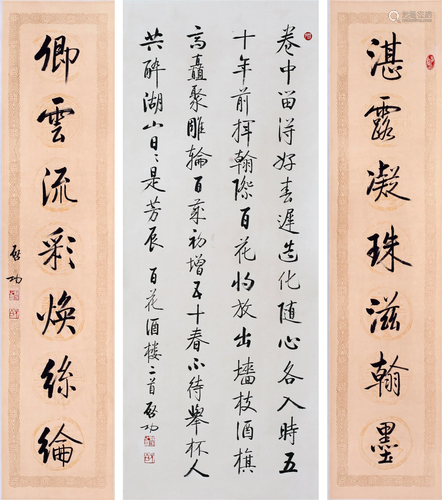 湛露凝珠滋翰墨
卷中留得好春遲造化随心各入時五
十年前揮翰際百花放出墻枝酒旗
高矗聚雕輪百歲初增五十春不待舉杯人
共醉湖山日〻是芳辰 百花酒樓二首 啟功
卿雲流彩焕絲綸
啟功